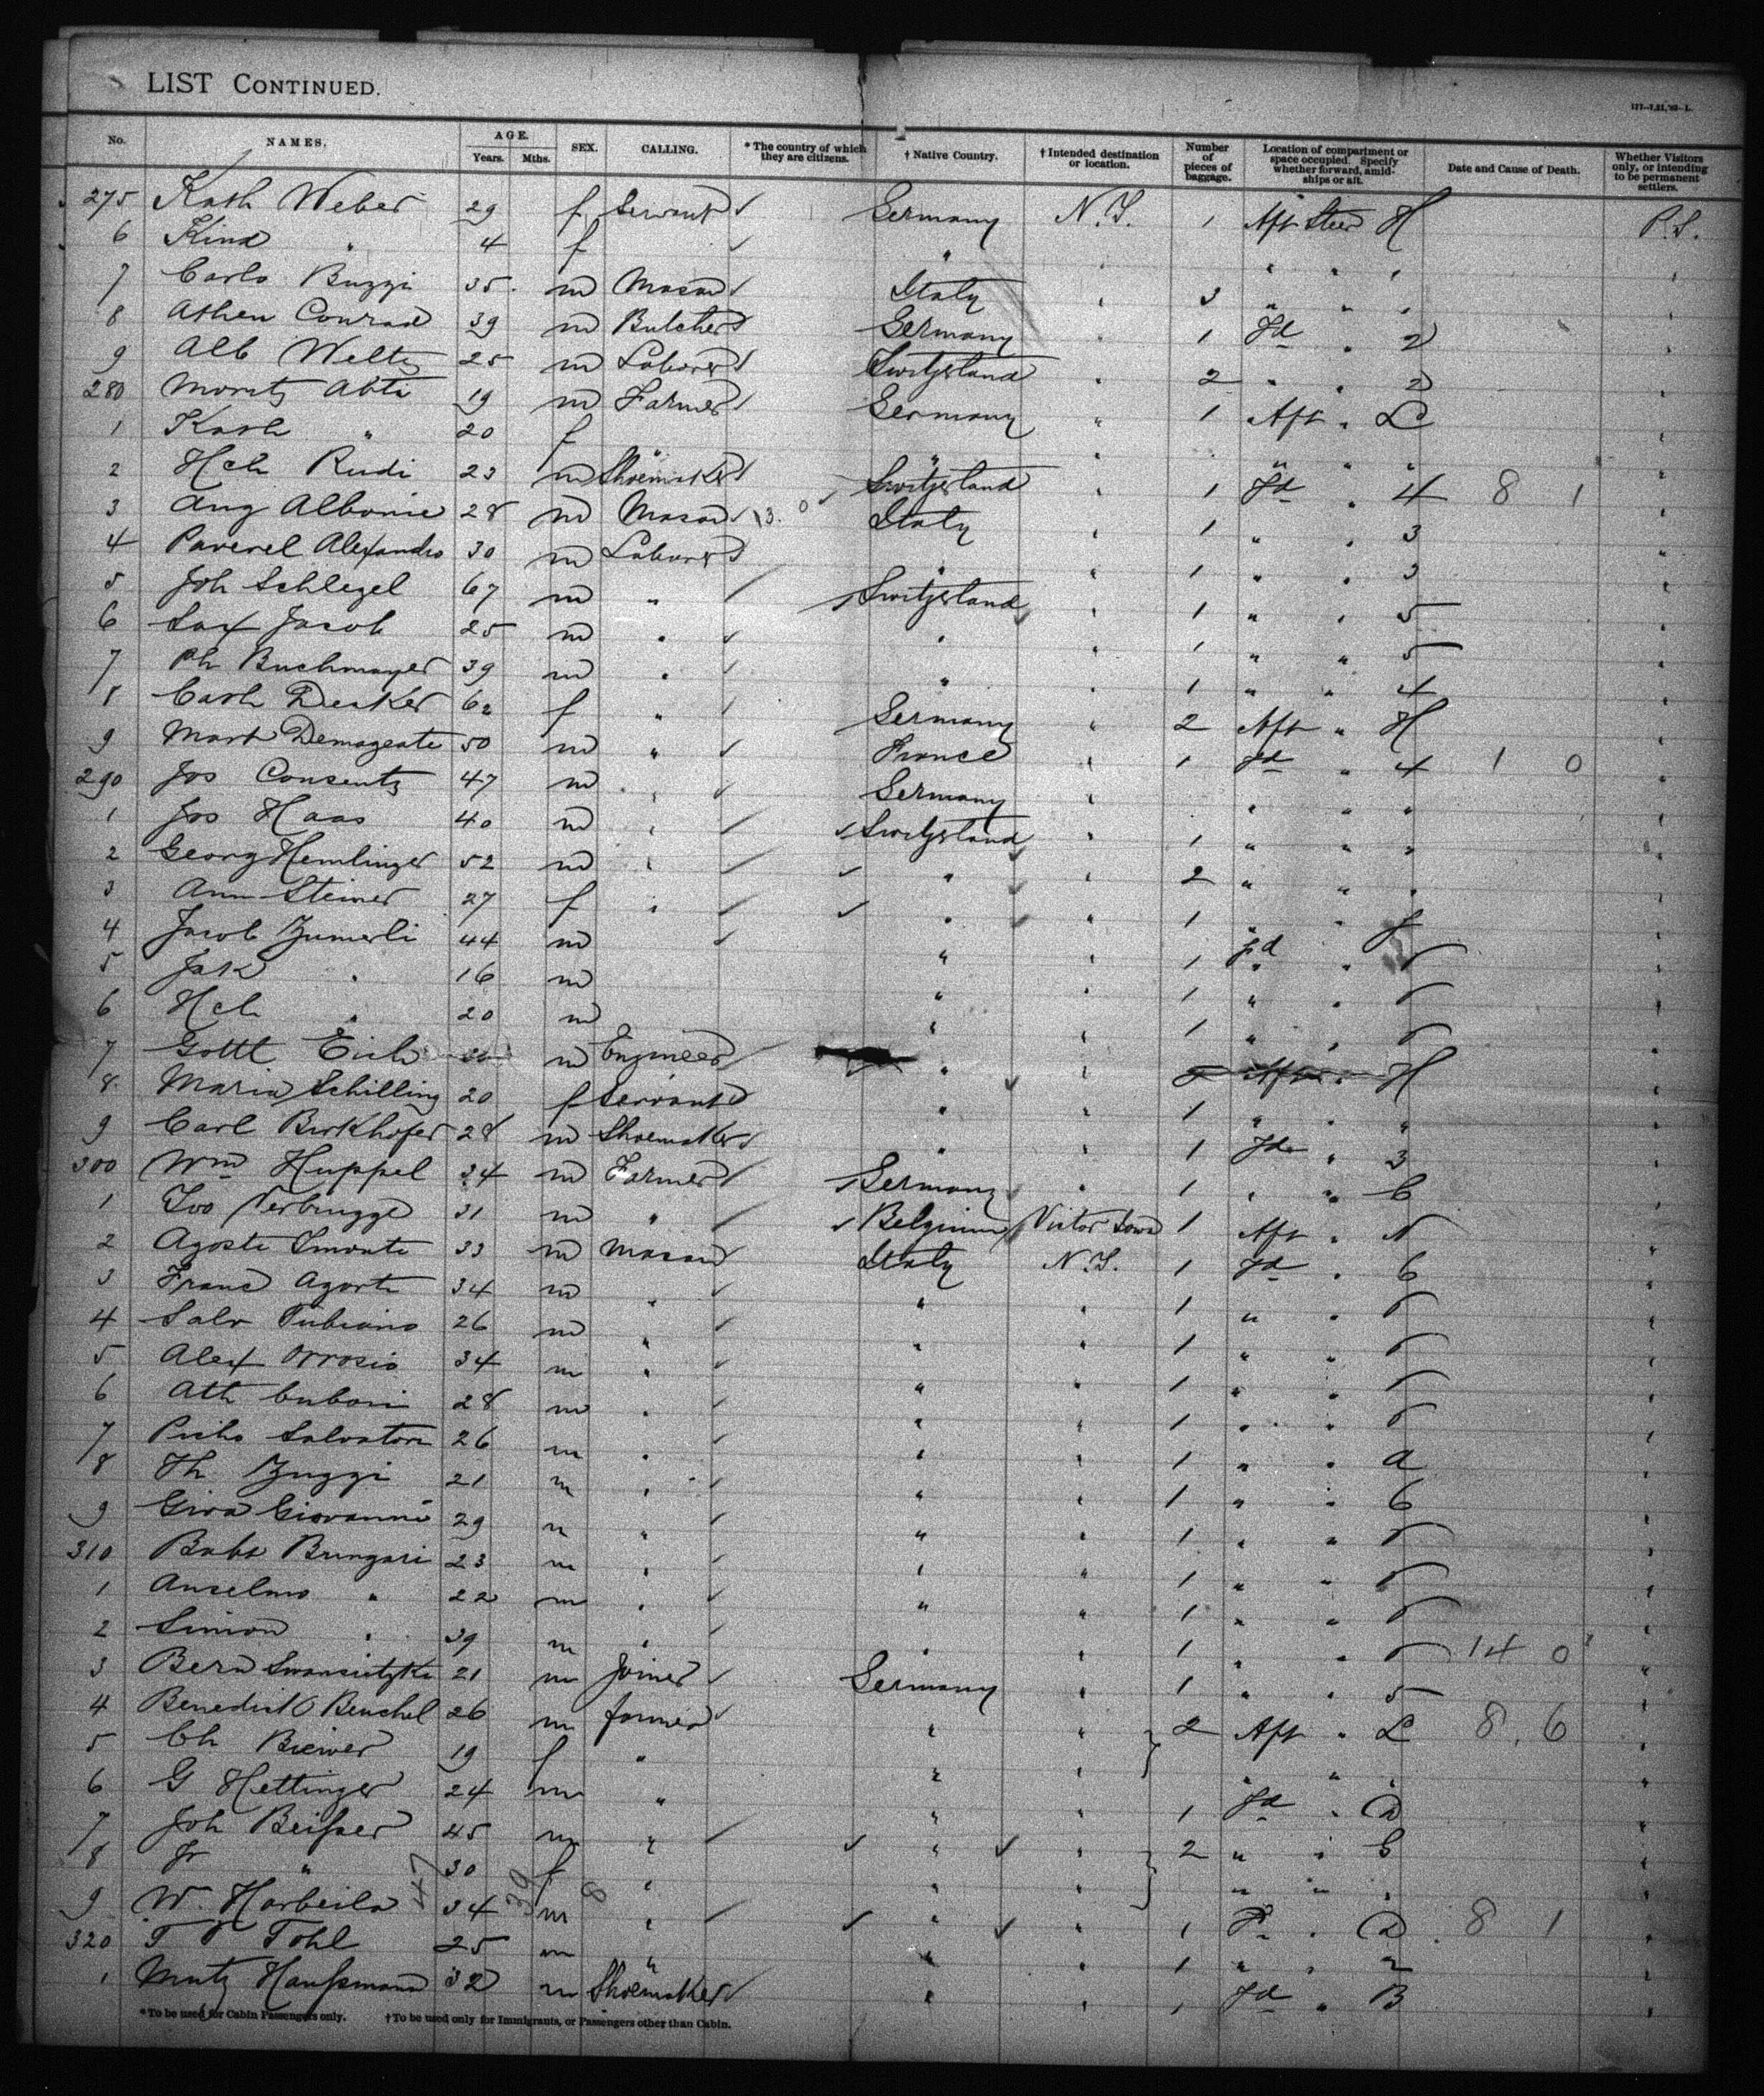 LIST CONTINUED.
No. NAMES. AGE. Years. Mths. SEX. CALLING. * The country of which they are citizens. † Native Country. † Intended destination or location. Number of pieces of baggage. Location of compartment or space occupied. Specify whether forward, amidships or aft. Date and Cause of Death. Whether Visitors only, or intending to be permanent settlers.
275 Kath Weber 29 f Servant Germany N.Y. 1 Aft Steer H P.S.
6 Kind " 4 f " " " " "
7 Carlo Buzzi 35 m Mason Italy " 3 " " " "
8 Athen Conrad 39 m Butcher Germany " 1 Fd " 2 "
9 Alb Welty 25 m Laborer Switzerland " 2 " " 2 "
280 Moritz Abta 19 m Farmer Germany " 1 Aft " L "
1 Kath " 20 f " " " " " " "
2 Hch Rudi 23 m Shoemaker Switzerland " 1 Fd " 4 8 1 "
3 Aug Albonie 28 m Mason 13. 0 Italy " 1 " " 3 "
4 Paverel Alexandro 30 m Laborer " " 1 " " 3 "
5 Joh Schlegel 67 m " Switzerland " 1 " " 5 "
6 Sax Jacob 25 m " " " 1 " " 5 "
7 Ph Buchmayer 39 m " " " 1 " " 4 "
8 Cath Decker 62 f " Germany " 2 Aft " H "
9 Mart Demageate 50 m " France " 1 Fd " 4 1 0 "
290 Jos Consentz 47 m " Germany " " " " "
1 Jos Haas 40 m " Switzerland " 1 " " " "
2 Georg Hemlinger 52 m " " " 2 " " " "
3 Ann Steiner 27 f " " " 1 " " f "
4 Jacob Zumerli 44 m " " 1 Fd " "
5 Jak " 16 m " " 1 " " "
6 Hch " 20 m " " 1 " " "
7 Gottl Eich m Engineer " " Aft " H "
8 Maria Schilling 20 f Servant " " 1 " " " "
9 Carl Birkhofer 28 m Shoemaker " " 1 Fd " 3 "
300 Wm Huppel 34 m Farmer Germany " 1 " " 6 "
1 Ivo Verbrugge 31 m " Belgium Victor Iowa 1 Aft " N "
2 Agosti Smonte 33 m Mason Italy N.Y. 1 Fd " 6 "
3 Franc Agorti 34 m " " " 1 " " "
4 Salv Tubiano 26 m " " " 1 " " "
5 Alex Orrosio 34 m " " " 1 " " "
6 Ath Cuboni 28 m " " " 1 " " "
7 Picho Salvatore 26 m " " " 1 " " a "
8 Th Zuggi 21 m " " " 1 " " 6 "
9 Giva Giovanni 29 m " " " 1 " " "
310 Babt Brungari 23 m " " " 1 " " "
1 Anselmo " 22 m " " " 1 " " "
2 Simon " 39 m " " " 1 " " 14 0 "
3 Bern 21 m Joiner Germany " 1 " " 5 "
4 Benedict Beuchel 26 m farmer " " 2 Aft " L 8. 6 "
5 Ch Biewer 19 f " " " " " " "
6 G Hettinger 24 m " " " 1 Fd " D "
7 Joh Beisser 45 m " " " 2 " " G "
8 Fr " 30 f " " " " " " "
9 W. Harbeila 34 m " " " 1 " D 8 1 "
320 Tohl 25 m " " " 1 " " 2 "
1 Mutz Haussmann 32 m Shoemaker " " 1 Fd " B "
47 39 8
* To be used for Cabin Passengers only. † To be used only for Immigrants, or Passengers other than Cabin.